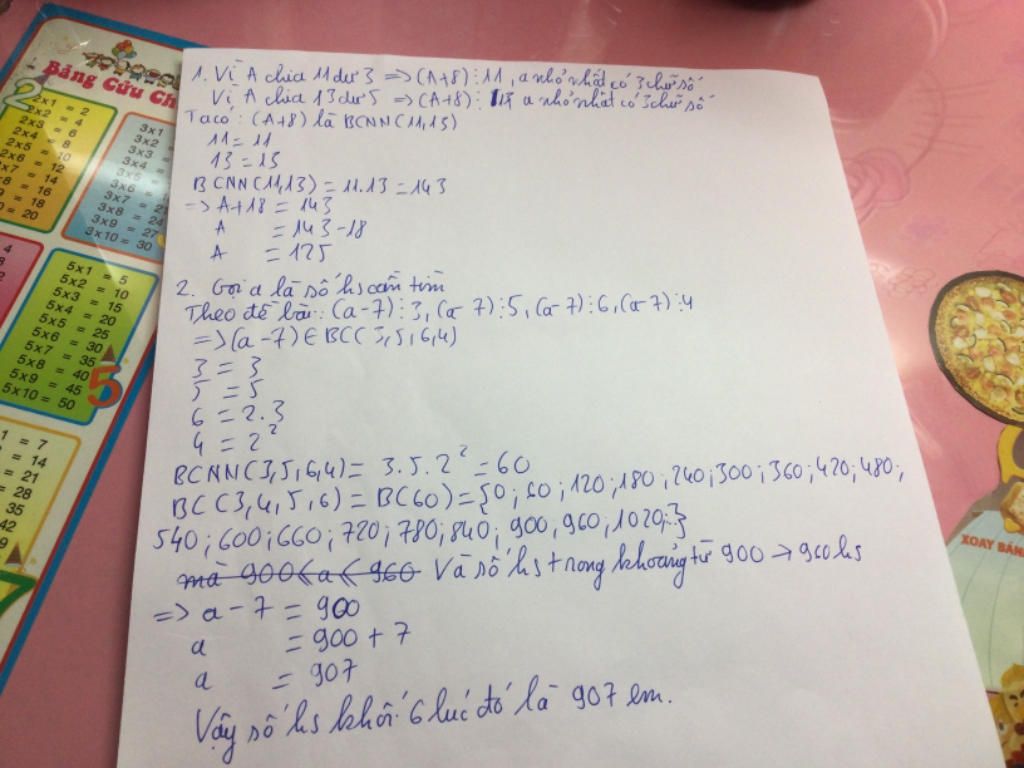 Bảng Cửu Ch
2
2x1 = 2
2x2 = 4
2x3 = 6
2x4 = 8
2x5 = 10
2x6 = 12
2x7 = 14
8 = 16
9 = 18
0 = 20
3x1
3x2
3x3
3x4
3x5
3x6
3x7 = 21
3x8 = 24
3x9 = 27
3x10 = 30
5x1 = 5
5x2 = 10
5x3 = 15
5x4 = 20
5x5 = 25
5x6 = 30
5x7 = 35
5x8 = 40
5x9 = 45
5x10 = 50
5
1 = 7
= 14
= 21
= 28
35
42
7
1. Vì A chia 11 dư 3 => (A+8) ⋮ 11, a nhỏ nhất có 3 chữ số
Vì A chia 13 dư 5 => (A+8) ⋮ 13 a nhỏ nhất có 3 chữ số
Ta có: (A+8) là BCNN(11,13)
11 = 11
13 = 13
BCNN(11,13) = 11.13 = 143
=> A+18 = 143
A = 143-18
A = 125
2. Gọi a là số hs cần tìm
Theo đề bài: (a-7) ⋮ 3, (a-7) ⋮ 5, (a-7) ⋮ 6, (a-7) ⋮ 4
=> (a-7) ∈ BC(3,5,6,4)
3 = 3
5 = 5
6 = 2.3
4 = 2²
BCNN(3,5,6,4) = 3.5.2² = 60
BC(3,4,5,6) = B(60) = {0; 60; 120; 180; 240; 300; 360; 420; 480;
540; 600; 660; 720; 780; 840; 900; 960; 1020; .}
mà 900<a<960 Và số hs trong khoảng từ 900 → 960 hs
=> a - 7 = 900
a = 900 + 7
a = 907
Vậy số hs khối 6 lúc đó là 907 em.
XOAY BÁN